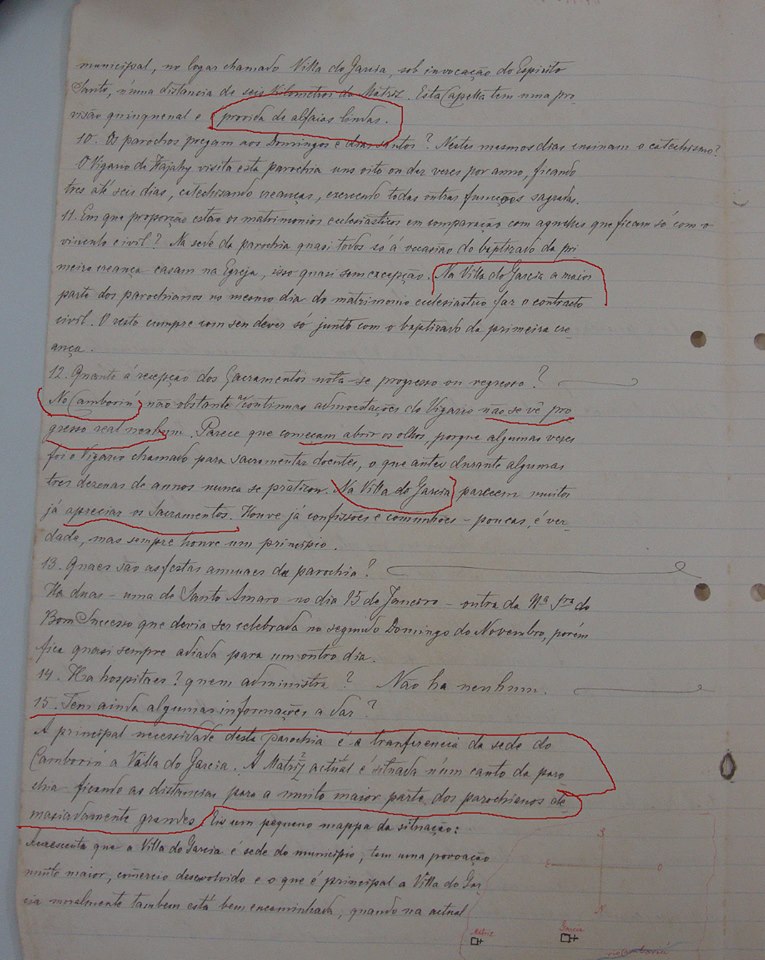 municipal, no logar chamado Villa do Garcia, sob invocação do Espirito
Santo, n'uma distancia de seis kilometros da Matriz. Esta Capella tem uma pro
visão quinquenal e provida de alfaias lindas.
10. Os parochos pregam aos Domingos e dias santos? Nestes mesmos dias ensinam o catechismo?
O Vigario de Itajahy visita esta parochia uns oito ou dez vezes por anno, ficando
tres até seis dias, catechisando creanças, exercendo todas outras funcções sagradas.
11. Em que proporção estão os matrimonios ecclesiasticos em comparação com aquelles que ficam só com o
vinculo civil? Na sede da parochia quasi todos só á occasião do baptizado da pri
meira creança casam na Egreja, isso quasi sem excepção. Na Villa do Garcia a maior
parte dos parochianos no mesmo dia do matrimonio ecclesiastico faz o contracto
civil. O resto cumpre com seu dever só junto com o baptizado da primeira cre
ança.
12. Quanto á recepção dos Sacramentos nota-se progresso ou regresso?
No Camboriu não obstante continuas admoestações do Vigario não se vê pro
gresso real nenhum. Parece que começam abrir os olhos, porque algumas vezes
foi o Vigario chamado para sacramentar doentes, o que antes durante algumas
tres dezenas de annos nunca se praticou. Na Villa do Garcia parecem muitos
já apreciar os Sacramentos. Houve já confissões e communhões - poucas, é ver
dade, mas sempre houve um principio.
13. Quaes são as festas annuaes da parochia?
Ha duas - uma de Santo Amaro no dia 15 de Janeiro - outra da Nª Srª do
Bom Sucesso que devia ser celebrada no segundo Domingo do Novembro, porém
fica quasi sempre adiada para um outro dia.
14. Ha hospitaes? quem administra? Não ha nenhum.
15. Tem ainda algumas informações a dar?
A principal necessidade desta parochia é a tranferencia da sede do
Camboriu a Villa do Garcia. A Matriz actual é situada n'um canto da paro
chia ficando as distancias para a muito maior parte dos parochianos de
masiadamente grandes. Eis um pequeno mappa da situação:
Accrescenta que a Villa do Garcia é sede do municipio, tem uma povoação
muito maior, comercio desenvolvido e o que é principal a Villa do Gar
cia moralmente tambem está bem encaminhada, quando na actual
S
E O
N
Matriz Garcia
rio Camboriú